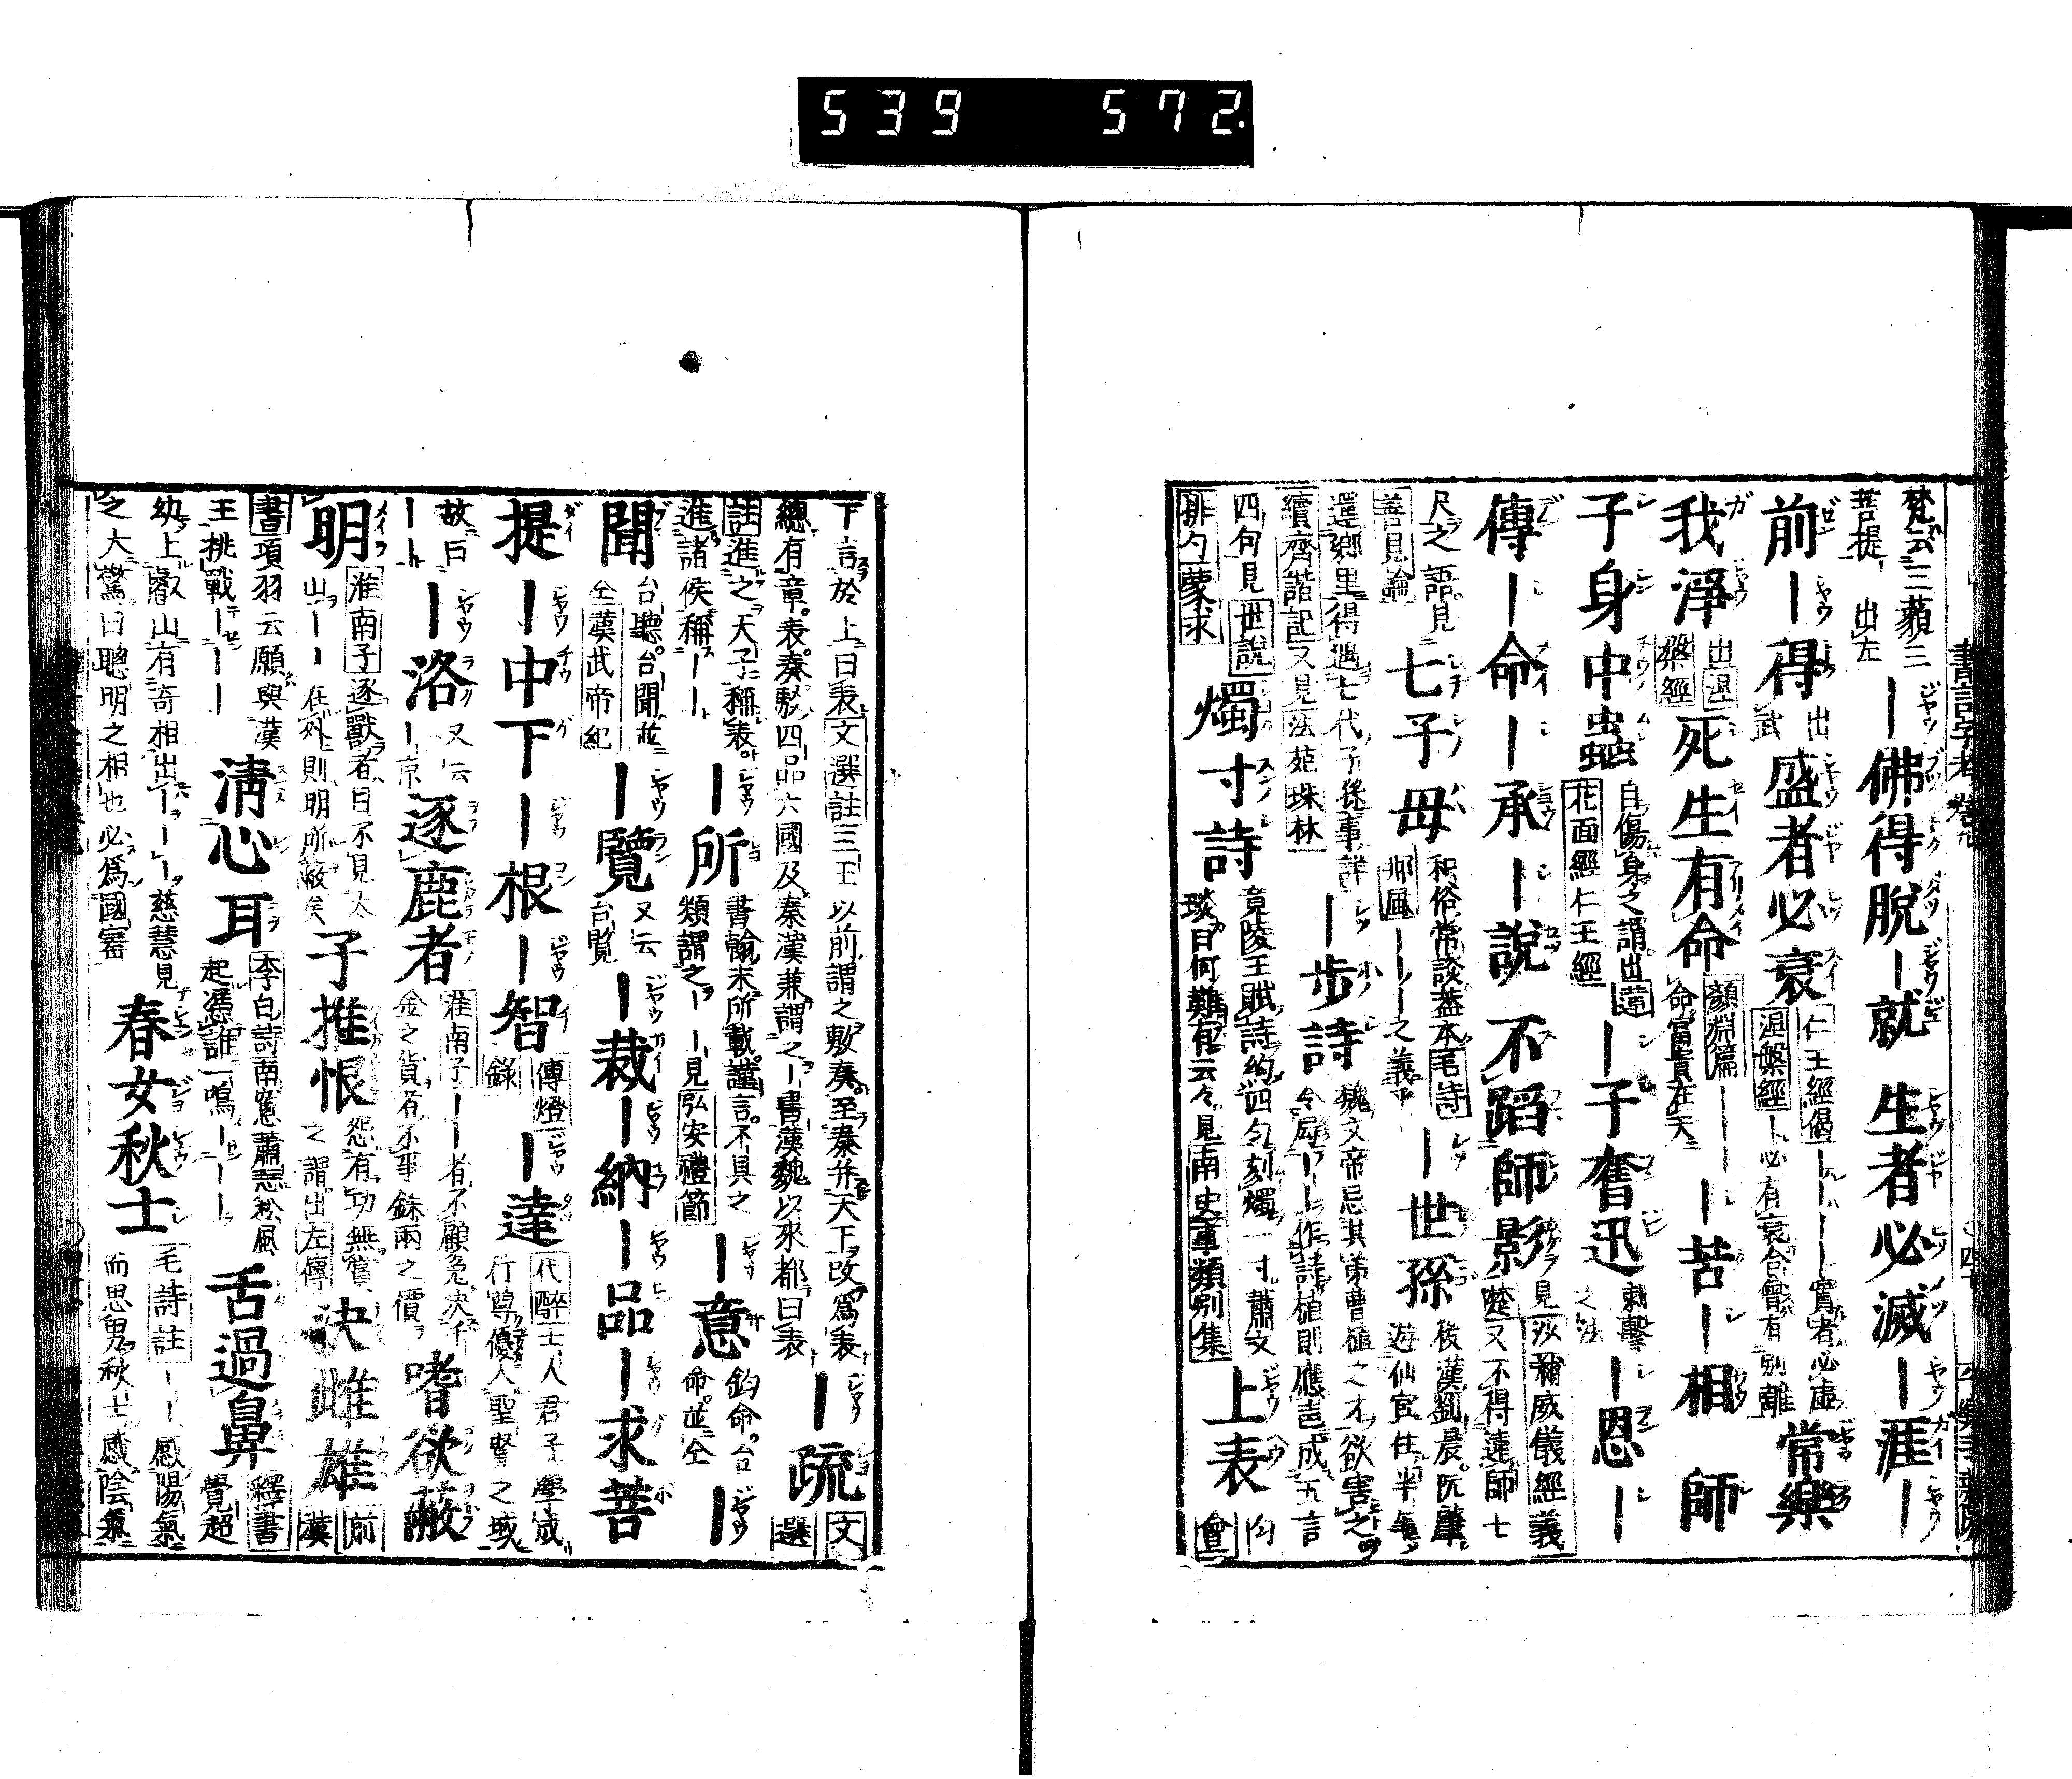 539 572
梵云三藐三
菩提 出左
｜佛得脫｜就 生者必滅｜涯｜
前｜得 出武 盛者必衰 仁王經偈｜｜｜｜實者必虛
涅槃經｜必有衰合會有別離 常樂
我淨 出涅槃經 死生有命 顏淵篇｜｜｜｜命富貴在天 ｜苦｜相 師
子身中蟲 自傷身之謂出蓮花面經仁王經 ｜子奮迅 之法 ｜恩｜
傳｜命｜承｜說 不蹈師影 見沙彌威儀經義又不得遠師七
尺之語見善見論 七子母 和俗常談蓋本毛詩邶風｜｜｜之義乎 ｜世孫 後漢劉晨阮肇遊仙宮住半年
還鄉里得遇七代子孫事詳續齊諧記又見法苑珠林 ｜步詩 魏文帝忌其弟曹植之才欲害之令屈｜｜作詩植則應
成五言
四句見世說排勻蒙求 燭寸詩 竟陵王賦詩約四勻刻燭一寸蕭文琰曰何難有云々見南史軍類別集 上表 勻會
下言於上曰表文選註三王以前謂之敷奏至秦并天下改爲表
總有章表奏駁四品六國及秦漢兼謂之｜書漢魏以來都曰表 ｜疏 文選
註進之天子稱表進諸侯稱｜｜ ｜所 書翰末所載謹言不具之類謂之｜｜見弘安禮節 ｜意 鈞命台命並仝 ｜
聞 台聽台聞並仝漢武帝紀 ｜覽 又云台覽 ｜裁｜納｜品｜求菩
提｜中下｜根｜智 傳燈錄 ｜達 代醉士人君子學成行尊優入聖賢之域
故曰｜｜ ｜洛 又云｜京 逐鹿者 淮南子｜｜者不顧兔決千金之貨者不爭銖兩之價 嗜欲蔽
明 淮南子逐獸者目不見太山｜｜在外則明所蔽矣 子推恨 怨有功無賞之謂出左傳 決雌雄 前漢
書項羽云願與漢王挑戰｜｜｜ 淸心耳 李白詩南窻蕭颯松風起憑誰一鳴｜｜｜ 舌過鼻 釋書覺超
幼上睿山有奇相出｜｜｜慈慧見之大驚曰聰明之相也必爲國審 春女秋士 毛詩註｜｜感陽氣而思男秋士感陰氣